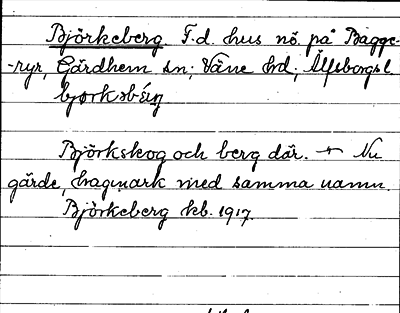 Björkeberg F.d. hus nö. på Bagge-
-ryr, Gärdhem sn; Väne hd; Älfsborgs l.
Björkskog och berg där. Nu
gärde, hagmark med samma namn.
Björkeberg kb. 1917.